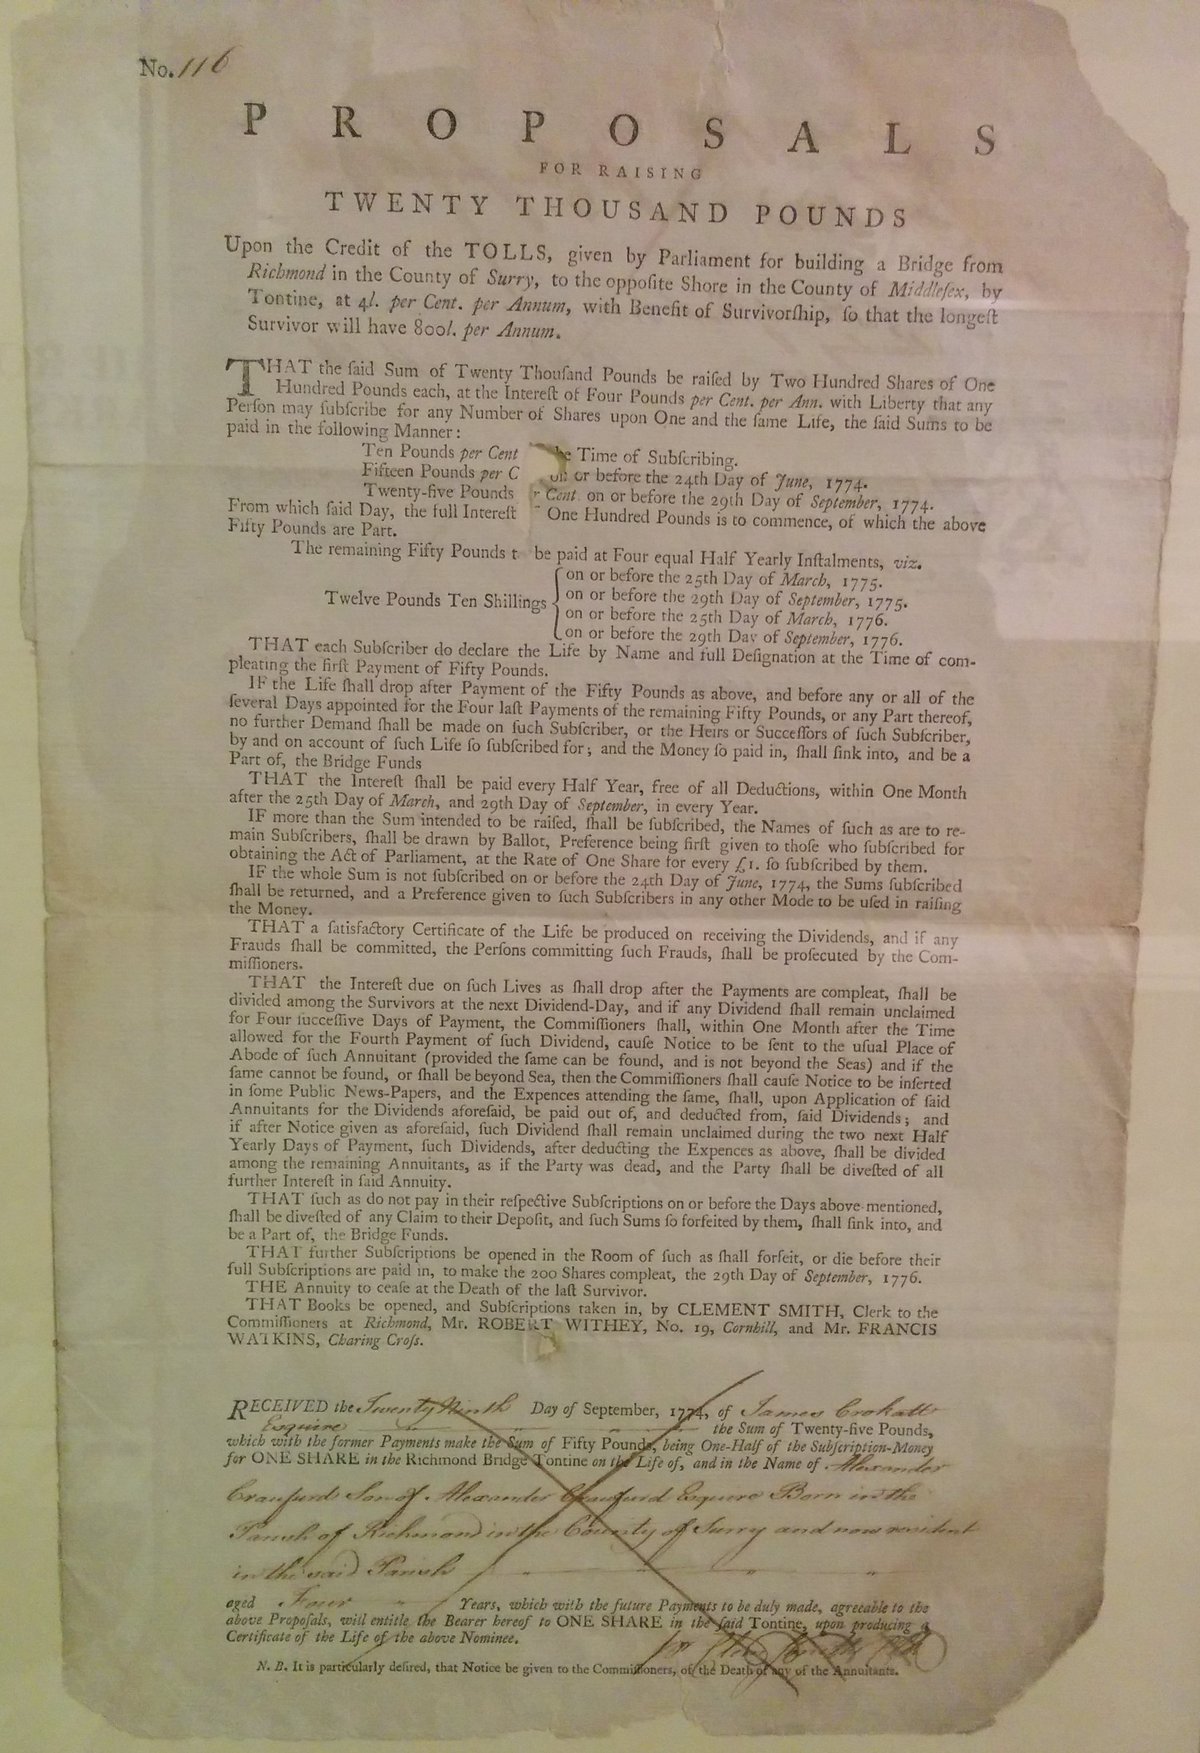 No. 116
PROPOSALS
FOR RAISING
TWENTY THOUSAND POUNDS
Upon the Credit of the TOLLS, given by Parliament for building a Bridge from
Richmond in the County of Surry, to the oppoſite Shore in the County of Middleſex, by
Tontine, at 4l. per Cent. per Annum, with Benefit of Survivorſhip, ſo that the longeſt
Survivor will have 800l. per Annum.
THAT the ſaid Sum of Twenty Thouſand Pounds be raiſed by Two Hundred Shares of One
Hundred Pounds each, at the Intereſt of Four Pounds per Cent. per Ann. with Liberty that any
Perſon may ſubſcribe for any Number of Shares upon One and the ſame Life, the ſaid Sums to be
paid in the following Manner:
Ten Pounds per Cent he Time of Subſcribing.
Fifteen Pounds per C on or before the 24th Day of June, 1774.
Twenty-five Pounds r Cent on or before the 29th Day of September, 1774.
From which ſaid Day, the full Intereſt One Hundred Pounds is to commence, of which the above
Fifty Pounds are Part.
The remaining Fifty Pounds t be paid at Four equal Half Yearly Inſtalments, viz.
on or before the 25th Day of March, 1775.
on or before the 29th Day of September, 1775.
Twelve Pounds Ten Shillings
on or before the 25th Day of March, 1776.
on or before the 29th Day of September, 1776.
THAT each Subſcriber do declare the Life by Name and full Deſignation at the Time of com-
pleating the firſt Payment of Fifty Pounds.
IF the Life ſhall drop after Payment of the Fifty Pounds as above, and before any or all of the
ſeveral Days appointed for the Four laſt Payments of the remaining Fifty Pounds, or any Part thereof,
no further Demand ſhall be made on ſuch Subſcriber, or the Heirs or Succeſſors of ſuch Subſcriber,
by and on account of ſuch Life ſo ſubſcribed for; and the Money ſo paid in, ſhall ſink into, and be a
Part of, the Bridge Funds
THAT the Intereſt ſhall be paid every Half Year, free of all Deductions, within One Month
after the 25th Day of March, and 29th Day of September, in every Year.
IF more than the Sum intended to be raiſed, ſhall be ſubſcribed, the Names of ſuch as are to re-
main Subſcribers, ſhall be drawn by Ballot, Preference being firſt given to thoſe who ſubſcribed for
obtaining the Act of Parliament, at the Rate of One Share for every £1. ſo ſubſcribed by them.
IF the whole Sum is not ſubſcribed on or before the 24th Day of June, 1774, the Sums ſubſcribed
ſhall be returned, and a Preference given to ſuch Subſcribers in any other Mode to be uſed in raiſing
the Money.
THAT a ſatisfactory Certificate of the Life be produced on receiving the Dividends, and if any
Frauds ſhall be committed, the Perſons committing ſuch Frauds, ſhall be proſecuted by the Com-
miſſioners.
THAT the Intereſt due on ſuch Lives as ſhall drop after the Payments are compleat, ſhall be
divided among the Survivors at the next Dividend-Day, and if any Dividend ſhall remain unclaimed
for Four ſucceſſive Days of Payment, the Commiſſioners ſhall, within One Month after the Time
allowed for the Fourth Payment of ſuch Dividend, cauſe Notice to be ſent to the uſual Place of
Abode of ſuch Annuitant (provided the ſame can be found, and is not beyond the Seas) and if the
ſame cannot be found, or ſhall be beyond Sea, then the Commiſſioners ſhall cauſe Notice to be inſerted
in ſome Public News-Papers, and the Expences attending the ſame, ſhall, upon Application of ſaid
Annuitants for the Dividends aforeſaid, be paid out of, and deducted from, ſaid Dividends; and
if after Notice given as aforeſaid, ſuch Dividend ſhall remain unclaimed during the two next Half
Yearly Days of Payment, ſuch Dividends, after deducting the Expences as above, ſhall be divided
among the remaining Annuitants, as if the Party was dead, and the Party ſhall be diveſted of all
further Intereſt in ſaid Annuity.
THAT ſuch as do not pay in their reſpective Subſcriptions on or before the Days above-mentioned,
ſhall be diveſted of any Claim to their Depoſit, and ſuch Sums ſo forfeited by them, ſhall ſink into, and
be a Part of, the Bridge Funds.
THAT further Subſcriptions be opened in the Room of ſuch as ſhall forfeit, or die before their
full Subſcriptions are paid in, to make the 200 Shares compleat, the 29th Day of September, 1776.
THE Annuity to ceaſe at the Death of the laſt Survivor.
THAT Books be opened, and Subſcriptions taken in, by CLEMENT SMITH, Clerk to the
Commiſſioners at Richmond, Mr. ROBERT WITHEY, No. 19, Cornhill, and Mr. FRANCIS
WATKINS, Charing Croſs.
RECEIVED the Twenty Ninth Day of September, 1774, of James Crokatt
Esquire the Sum of Twenty-five Pounds,
which with the former Payments make the Sum of Fifty Pounds, being One-Half of the Subſcription-Money
for ONE SHARE in the Richmond Bridge Tontine on the Life of, and in the Name of Alexander
Craufurd Son of Alexander Craufurd Esquire Born in the
Parish of Richmond in the County of Surry and now resident
in the said Parish
aged Four Years, which with the future Payments to be duly made, agreeable to the
above Propoſals, will entitle the Bearer hereof to ONE SHARE in the ſaid Tontine, upon producing a
Certificate of the Life of the above Nominee.
N. B. It is particularly deſired, that Notice be given to the Commiſſioners, of the Death of any of the Annuitants.